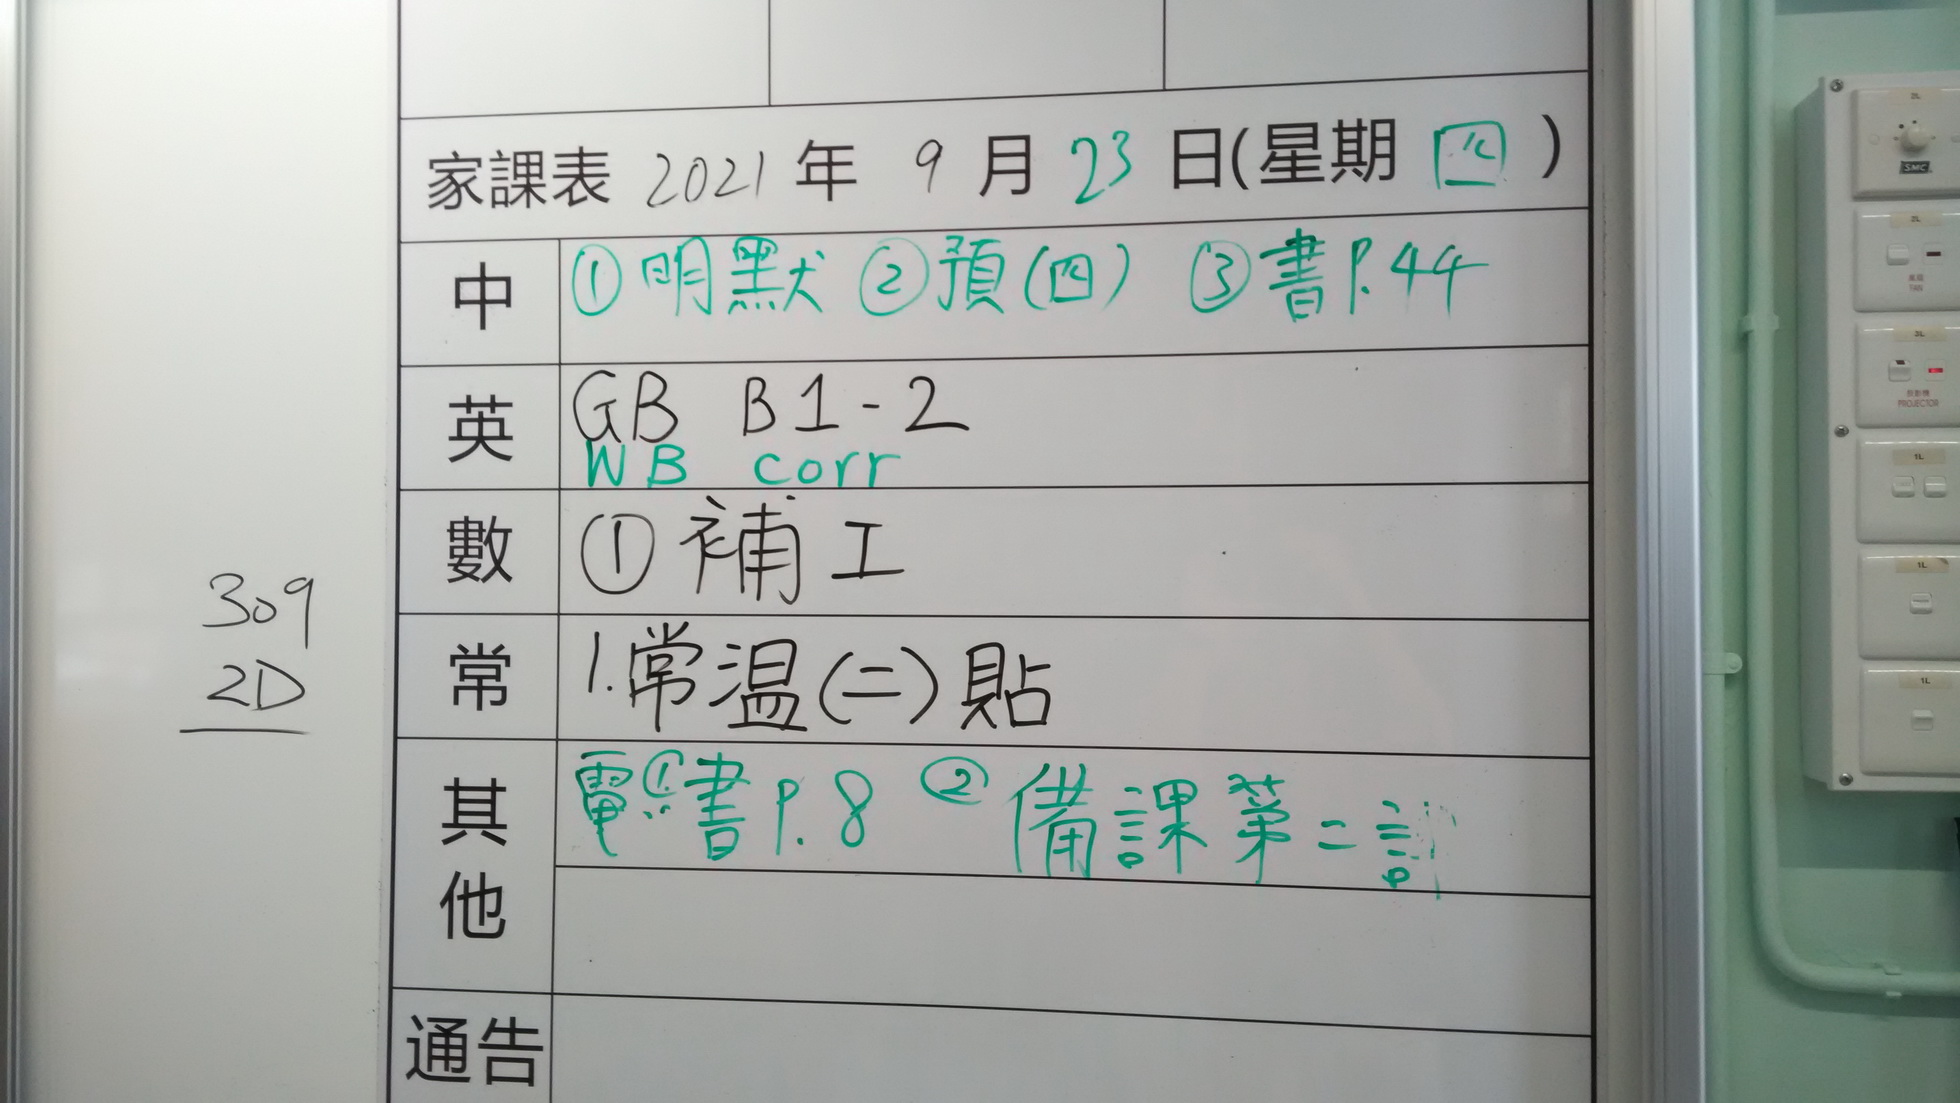 家課表 2021 年 9 月 23 日(星期 四)
中 ①明默 ②預(四) ③書P.44
英 GB B1-2
WB corr
數 ①補工
常 1.常温(二)貼
其他 電①書P.8 ② 備課第二
通告
309
2D
2L
SMC
2L
FAN
2L
PROJECTOR
1L
1L
1L